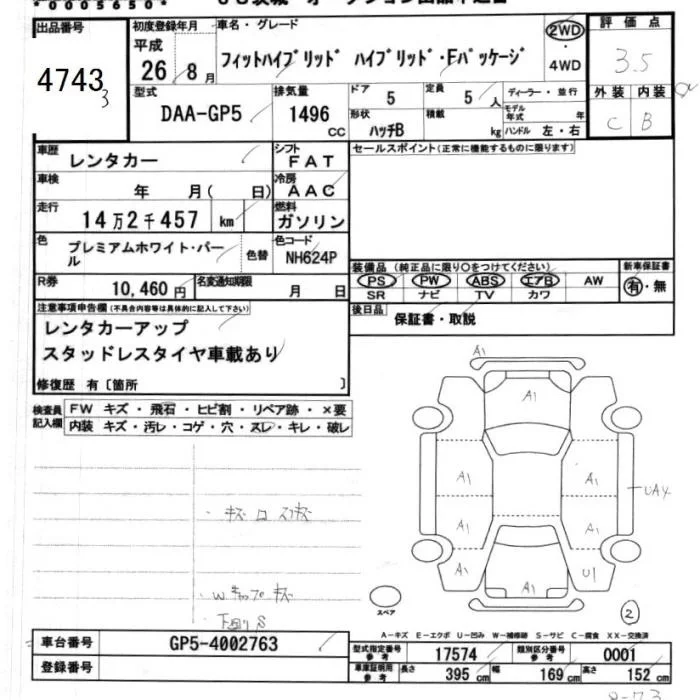 *0005650*
出品番号
4743
3
初度登録年月
平成
26年 8月
車名・グレード
フィットハイブリッド ハイブリッド・Fパッケージ
2WD
・
4WD
評価点
3.5
外装 内装
C B
型式
DAA-GP5
排気量
1496
CC
ドア
5
定員
5人
形状
ハッチB
積載
kg
ディーラー・並行
モデル年式 年
ハンドル 左・右
車歴
レンタカー
シフト
FAT
セールスポイント(正常に機能するものに限ります)
車検
年 月( 日)
冷房
AAC
走行
14万2千457 km
燃料
ガソリン
色
プレミアムホワイト・パール
色替
色コード
NH624P
R券
10,460円
名変通知期限
月 日
装備品 (純正品に限り○をつけてください)
新車保証書
PS PW ABS エアB AW
SR ナビ TV カワ
有・無
後日品
保証書・取説
注意事項申告欄(不具合内容等は具体的に記入して下さい)
レンタカーアップ
スタッドレスタイヤ車載あり
修復歴 有〔箇所 〕
検査員記入欄
FW キズ・飛石・ヒビ割・リペア跡・×要
内装 キズ・汚レ・コゲ・穴・スレ・キレ・破レ
A1
A1
A1 A1
UA4
A1 A1
A1 U1
A1
スペア
2
・キズ
Wキャップキズ
下廻りS
A-キズ E-エクボ U-凹み W-補修跡 S-サビ C-腐食 XX-交換済
車台番号
GP5-4002763
登録番号
型式指定番号
参考
17574
類別区分番号
参考
0001
車庫証明用
参考
長さ 395cm 幅 169cm 高さ 152cm